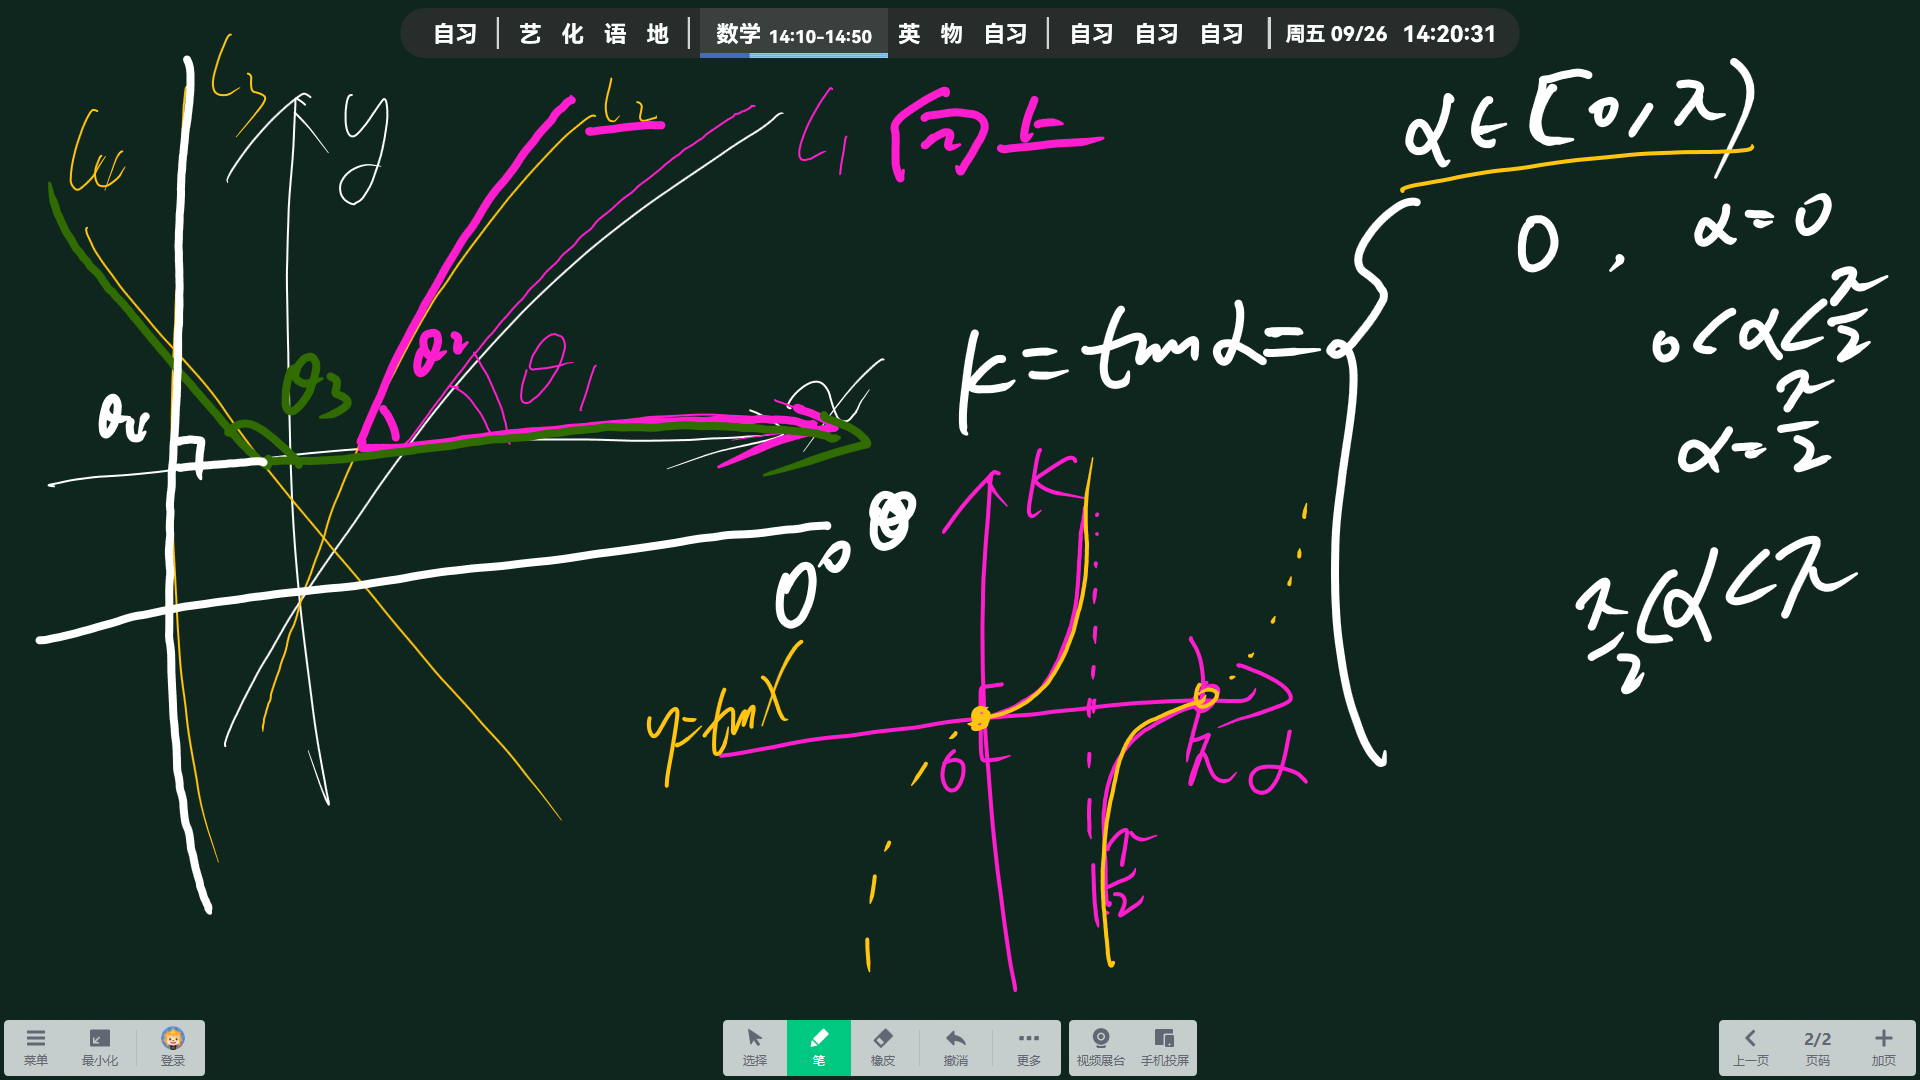 自习 | 艺 化 语 地 | 数学 14:10-14:50 英 物 自习 | 自习 自习 自习 | 周五 09/26 14:20:31
l3
y
l2
l1 向上
α∈[0,π)
l4
0 , α=0
θ2
θ1
θ3
θ4
k=tanα=
0<α<π/2
α=π/2
k
0°
π/2<α<π
y=tanx
0
π
α
π/2
菜单 最小化 登录
选择 笔 橡皮 撤消 更多
视频展台 手机投屏
上一页 2/2 页码 加页